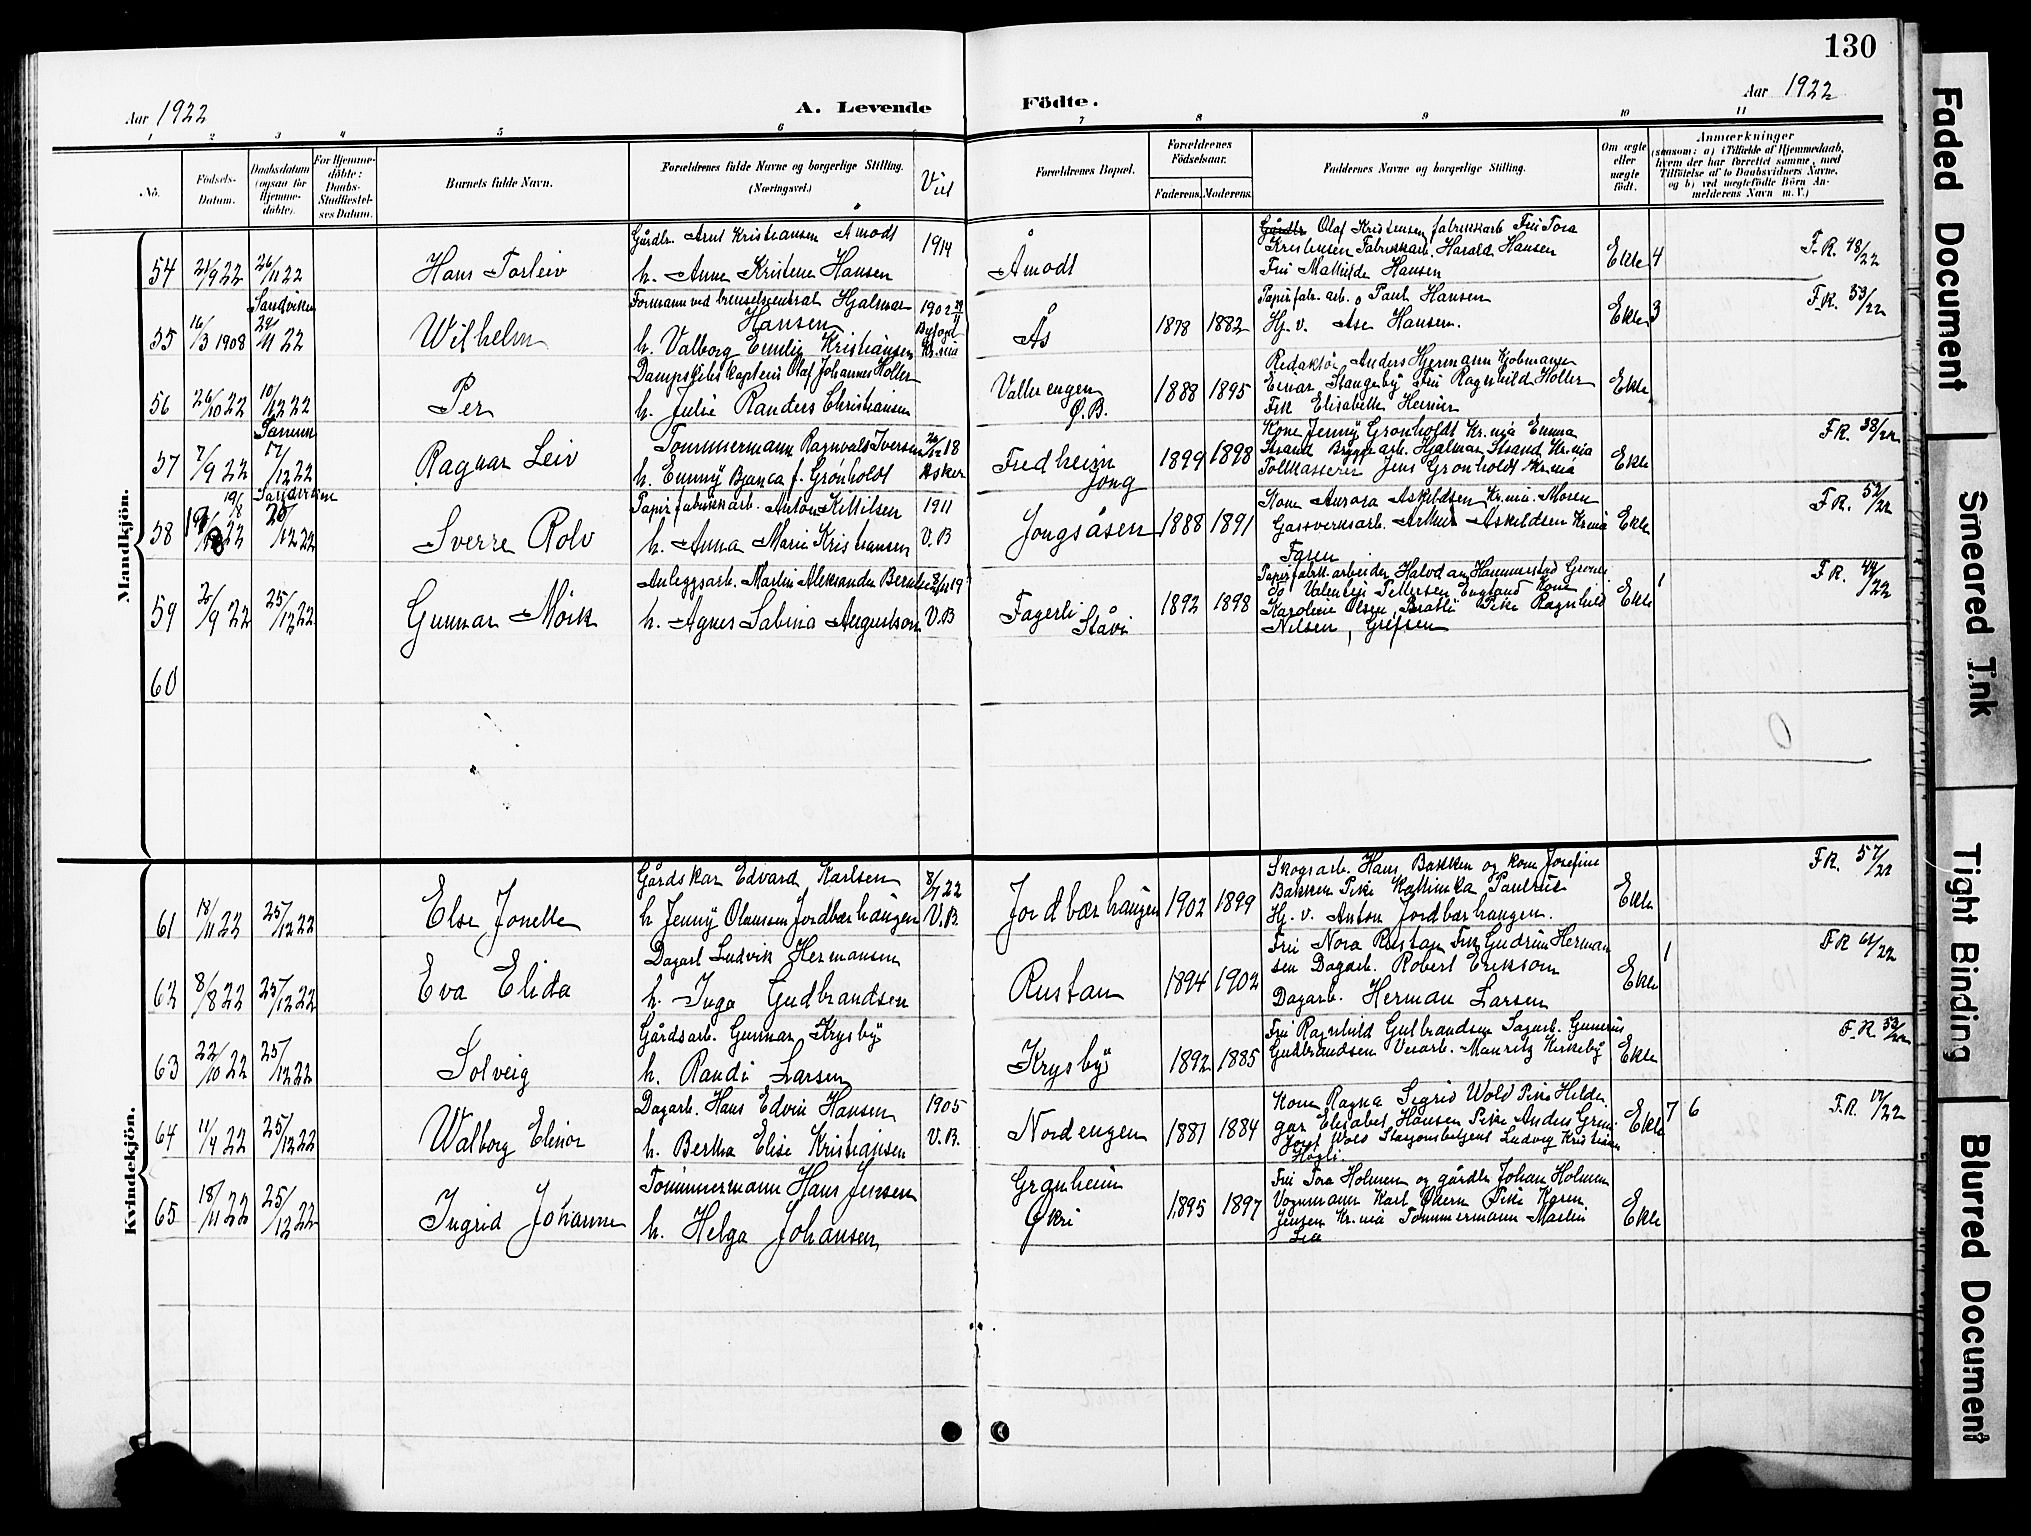 130
Aar 1922
A. Levende
Födte.
Aar 1922
1 2 3 4 5 6 7 8 9 10 11
No.
Födsels-Datum.
Daabsdatum (ogsaa for Hjemmedöbte).
For Hjemmedöbte: Daabs-Stadfæstelses Datum.
Barnets fulde Navn.
Forældrenes fulde Navne og borgerlige Stilling. (Næringsvei.)
Viet
Forældrenes Bopæl.
Forældrenes Födselsaar.
Faderens. Moderens.
Faddernes Navne og borgerlige Stilling.
Om ægte eller uægte födt.
Anmærkninger
(saasom: a) i Tilfælde af Hjemmedaab, hvem der har forrettet samme, med Tilföielse af to Daabsvidners Navne, og b) ved uægtefödte Börn Anmelderens Navn m. V.)
Mandkjön.
54 21/9 22 26/11 22 Hans Torleiv
Gårdbr. Arnt Kristiansen Åmodt
h. Anne Kristene Hansen
1914
Åmodt
Gårdbr Olaf Kristensen fabrikkarb Fru Tora
Kristensen Fabrikkarb. Harald Hansen
Fru Mathilde Hansen
Ekte 4 F.R. 48/22
55 16/3 1908 Sandviken 24/11 22 Wilhelm
Formann ved brenselscentral Hjalmar
Hansen
h. Valborg Emilie Kristiansen
1902 Byfogd Kr.nia
Ås
1878 1882
Papirfabr. arb. Paul Hansen
Hj. v. Åse Hansen.
Ekte 3 F.R. 53/22
56 26/10 22 10/12 22 Per
Dampskibs kaptein Olaf Johannes Holter
h. Julie Randers Christiansen
Vallerengen
Ø.B.
1888 1895
Redaktör Anders Hjermann Kjöbmann
Einar Stangeby Fru Ragnhild Holter
Frk Elisabeth
Ekte
57 7/9 22 Tanum 17/12 22 Ragnar Leiv
Tömmermann Ragnvald Iversen
h. Emmy Bjanca f. Grönholdt
18 Asker
Fredheim
Jong
1899 1898
Kone Jenny Grönholdt Kr.nia Emma
Strand Bryggearb. Hjalmar Strand Kr.nia
Tollkasserer Jens Grönholdt Kr.nia
Ekte F.R. 38/22
58 19/8 22 Sandviken 25/12 22 Sverre Rolv
Papirfabrikkarb. Anton Kittilsen
h. Anna Marie Kristiansen
1911
V.B
Jongsåsen
1888 1891
Kone Aurora Askildsen Kr.nia. Moren
Gassverksarb. Arthur Askildsen Kr.nia
Faren
Ekte F.R. 52/22
59 20/9 22 25/12 22 Gunnar Mörk
Anleggsarb. Martin Aleksander Berntsen
h. Agnes Sabina Augustson
19
V.B
Fagerli
Stavi
1892 1898
Papirfabrk. arbeider Halvdan Hammerstad
do Valentin Pettersen England Kone
Karoline Olsen, Bratli Pike Ragnhild
Nilsen, Grefsen
Ekte 1 F.R. 44/22
60
Kvindekjön.
61 18/11 22 25/12 22 Else Jonette
Gårdskar Edvard Karlsen
h Jenny Olaussen Jordbærhaugen
8/7 22
V.B.
Jordbærhaugen
1902 1899
Skogsarb. Hans Bakken og kone Josefine
Bakken Pike Kathinka Paulsen
Hj. v. Anton Jordbærhaugen.
Ekte F.R. 57/22
62 8/8 22 25/12 22 Eva Elida
Dagarb Ludvik Hermansen
h. Inga Gudbrandsen
Rustan
1894 1902
Fru Nora Rustan Frk Gudrun Herman
sen Dagarb. Robert Erikson
Dagarb. Herman Larsen
Ekte 1 F.R 61/22
63 22/10 22 25/12 22 Solveig
Gårdsarb. Gunnar Krysby
h. Randi Larsen
Krysby
1892 1885
Fru Ragnhild Gulbrandsen Sagarb. Gunerius
Gudbrandsen Veiarb. Mauritz Kirkeby
Ekte F.R 53/22
64 11/4 22 25/12 22 Walborg Elinor
Dagarb. Hans Edvin Hansen
h. Bertha Elise Kristiansen
1905
V.B.
Nordengen
1881 1884
Kone Ragna Sigrid Wold Pike Hilde
gar Elisabet Hansen Pike Anders
Wold Stasjonsbetjent Ludvig Kristian
Högli.
Ekte 7 6 F.R. 12/22
65 18/11 22 25/12 22 Ingrid Johanne
Tömmermann Hans Jensen
h. Helga Johansen
Granheim
Økri
1895 1897
Fru Tora Holmen og gårdbr Johan Holmen
Vognmann Karl Ökern Pike Karen
Jensen Kr.nia Tömmermann Martin
Lia
Ekte
Faded Document
Smeared Ink
Tight Binding
Blurred Document